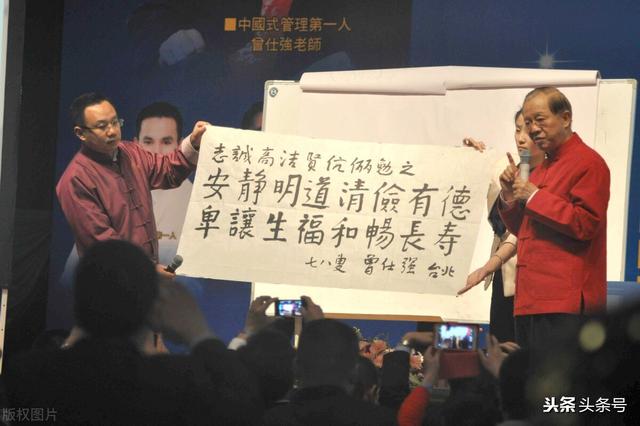 ■中國式管理第一人
曾仕強老師
志誠高法賢伉儷勉之
安靜明道清儉有德
卑讓生福和暢長寿
七八叟 曾仕强 台北
版权图片
头条头条号